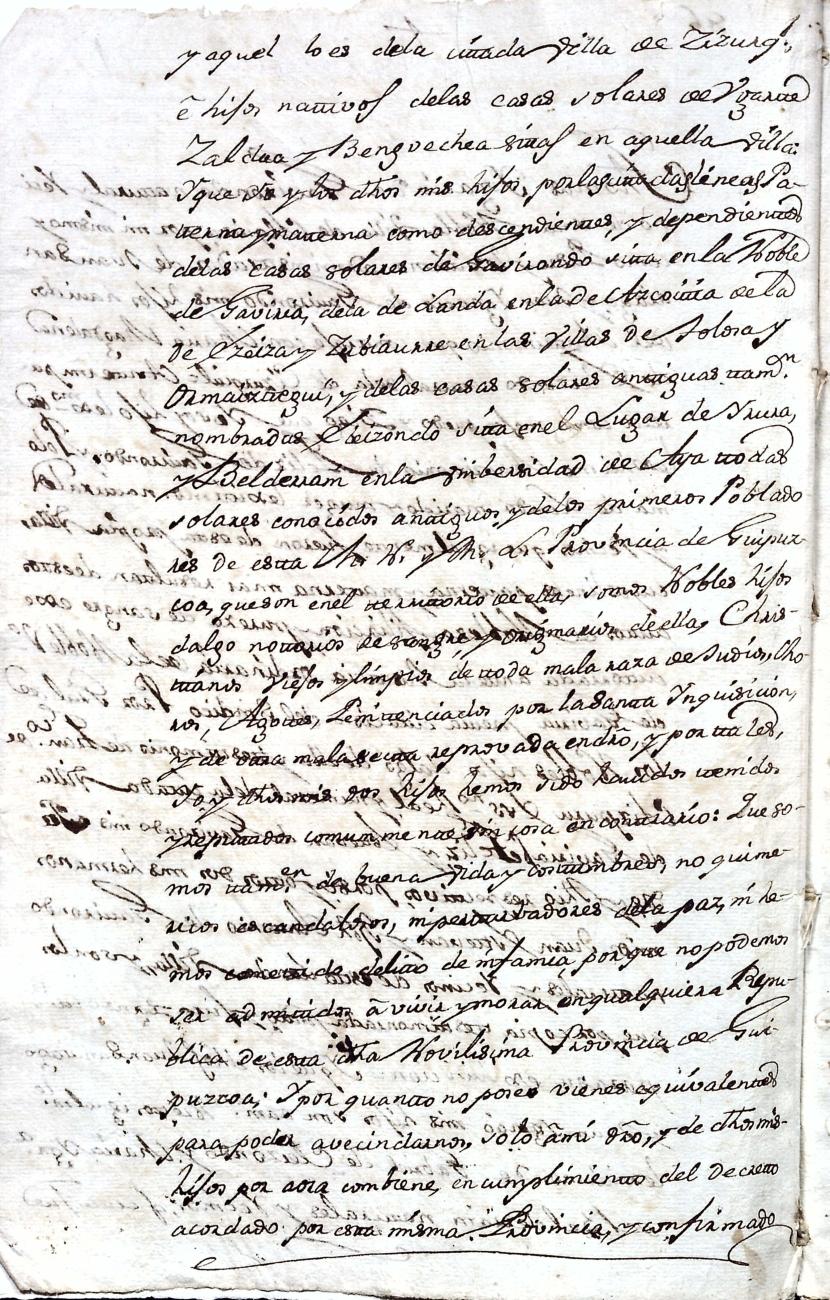 y aquel lo es dela cittada Villa de Zizurq.l
ê hijos nattivos delas casas solares de Ygartte
Zaldua y Benguechea sittas en aquella Villa:
Y que yo y los dhos mis hijos, por las cittadas lineas Pa-
tterna y matterna como descendientes, y dependienttes
delas casas solares de Gavirondo sitta en la Noble
de Gaviria, dela de Landa en la de Azcoittia de la
de Yzeiza y Zubiaurre en las Villas de Tolosa y
Ormaiztegui, y delas casas solares antiguas ttam.n
nombradas Elizondo sitta en el Lugar de Yrura,
y Belderrain en la Unibersidad de Aya ttodas
solares conocidos antiguos y delos primeros Poblado
res de estta M. N. y M. L. Provincia de Guipuz-
coa, que son en el tterrittorio de ella, somos Nobles hijos
dalgo nottorios de sangre, y originarios de ella, Chris-
ttianos Viejos y limpios de ttoda mala raza de Judios, Mo-
ros, Agottes, Penittenciados por la Santta Ynquisicion,
y de ottra mala sectta reprovada en dro, y por ttales,
Yo y dhos mis dos hijos hemos sido havidos ttenidos
y reputtados comunmentte sin cosa en conttrario: Que so-
mos ttamv.en de buena Vida y costtumbres, no quime-
ricos escandalosos, ni pertturbadores dela paz, ni he-
mos comettido delitto de infamia porque no podemos
ser admittidos â vivir y morar en qualquiera Repu-
blica de estta dha Novilisima Provincia de Gui-
puzcoa; Y por quantto no poseo vienes equivalenttes
para poder avecindarnos, solo â mi dro, y de dhos mis-
hijos por aora combiene, en cumplimientto del Decretto
acordado por estta misma Provincia, y confirmado